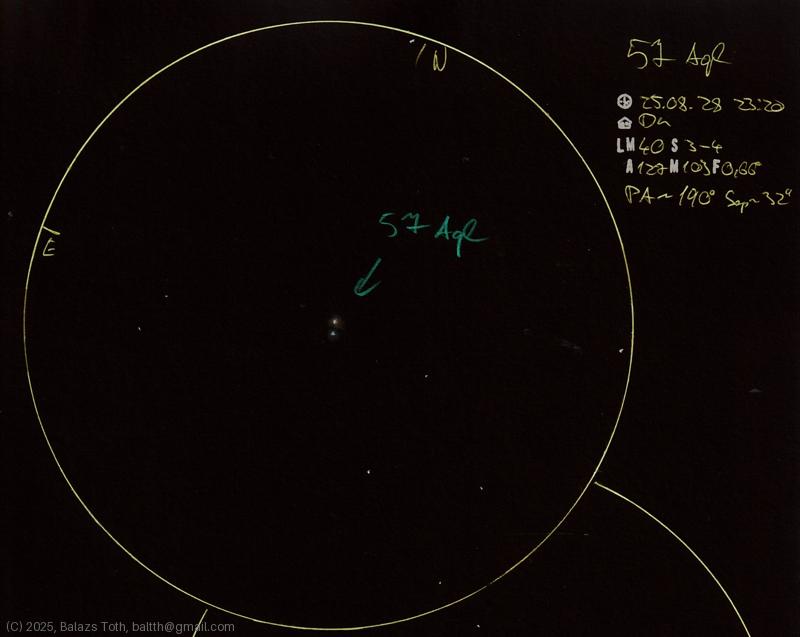 57 Aql
25.08.28 23:20
Dn
LM 40 S 3-4
A 127 M 103 F 0,66°
PA~190° Sep~32"
N
57 Aql
E
(C) 2025, Balazs Toth, baltth@gmail.com